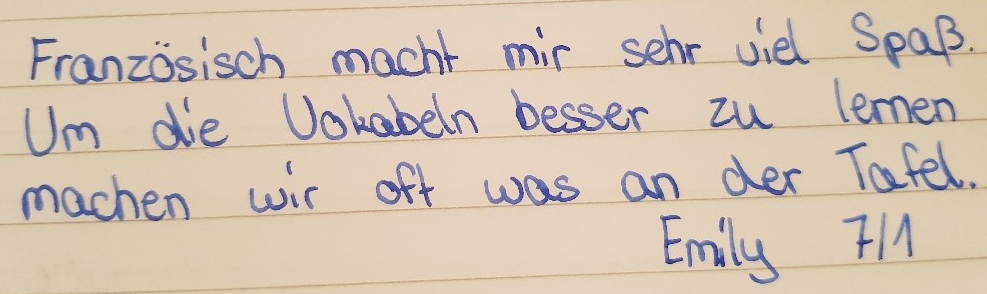 Französisch macht mir sehr viel Spaß.
Um die Vokabeln besser zu lernen
machen wir oft was an der Tafel.
Emily 7/1